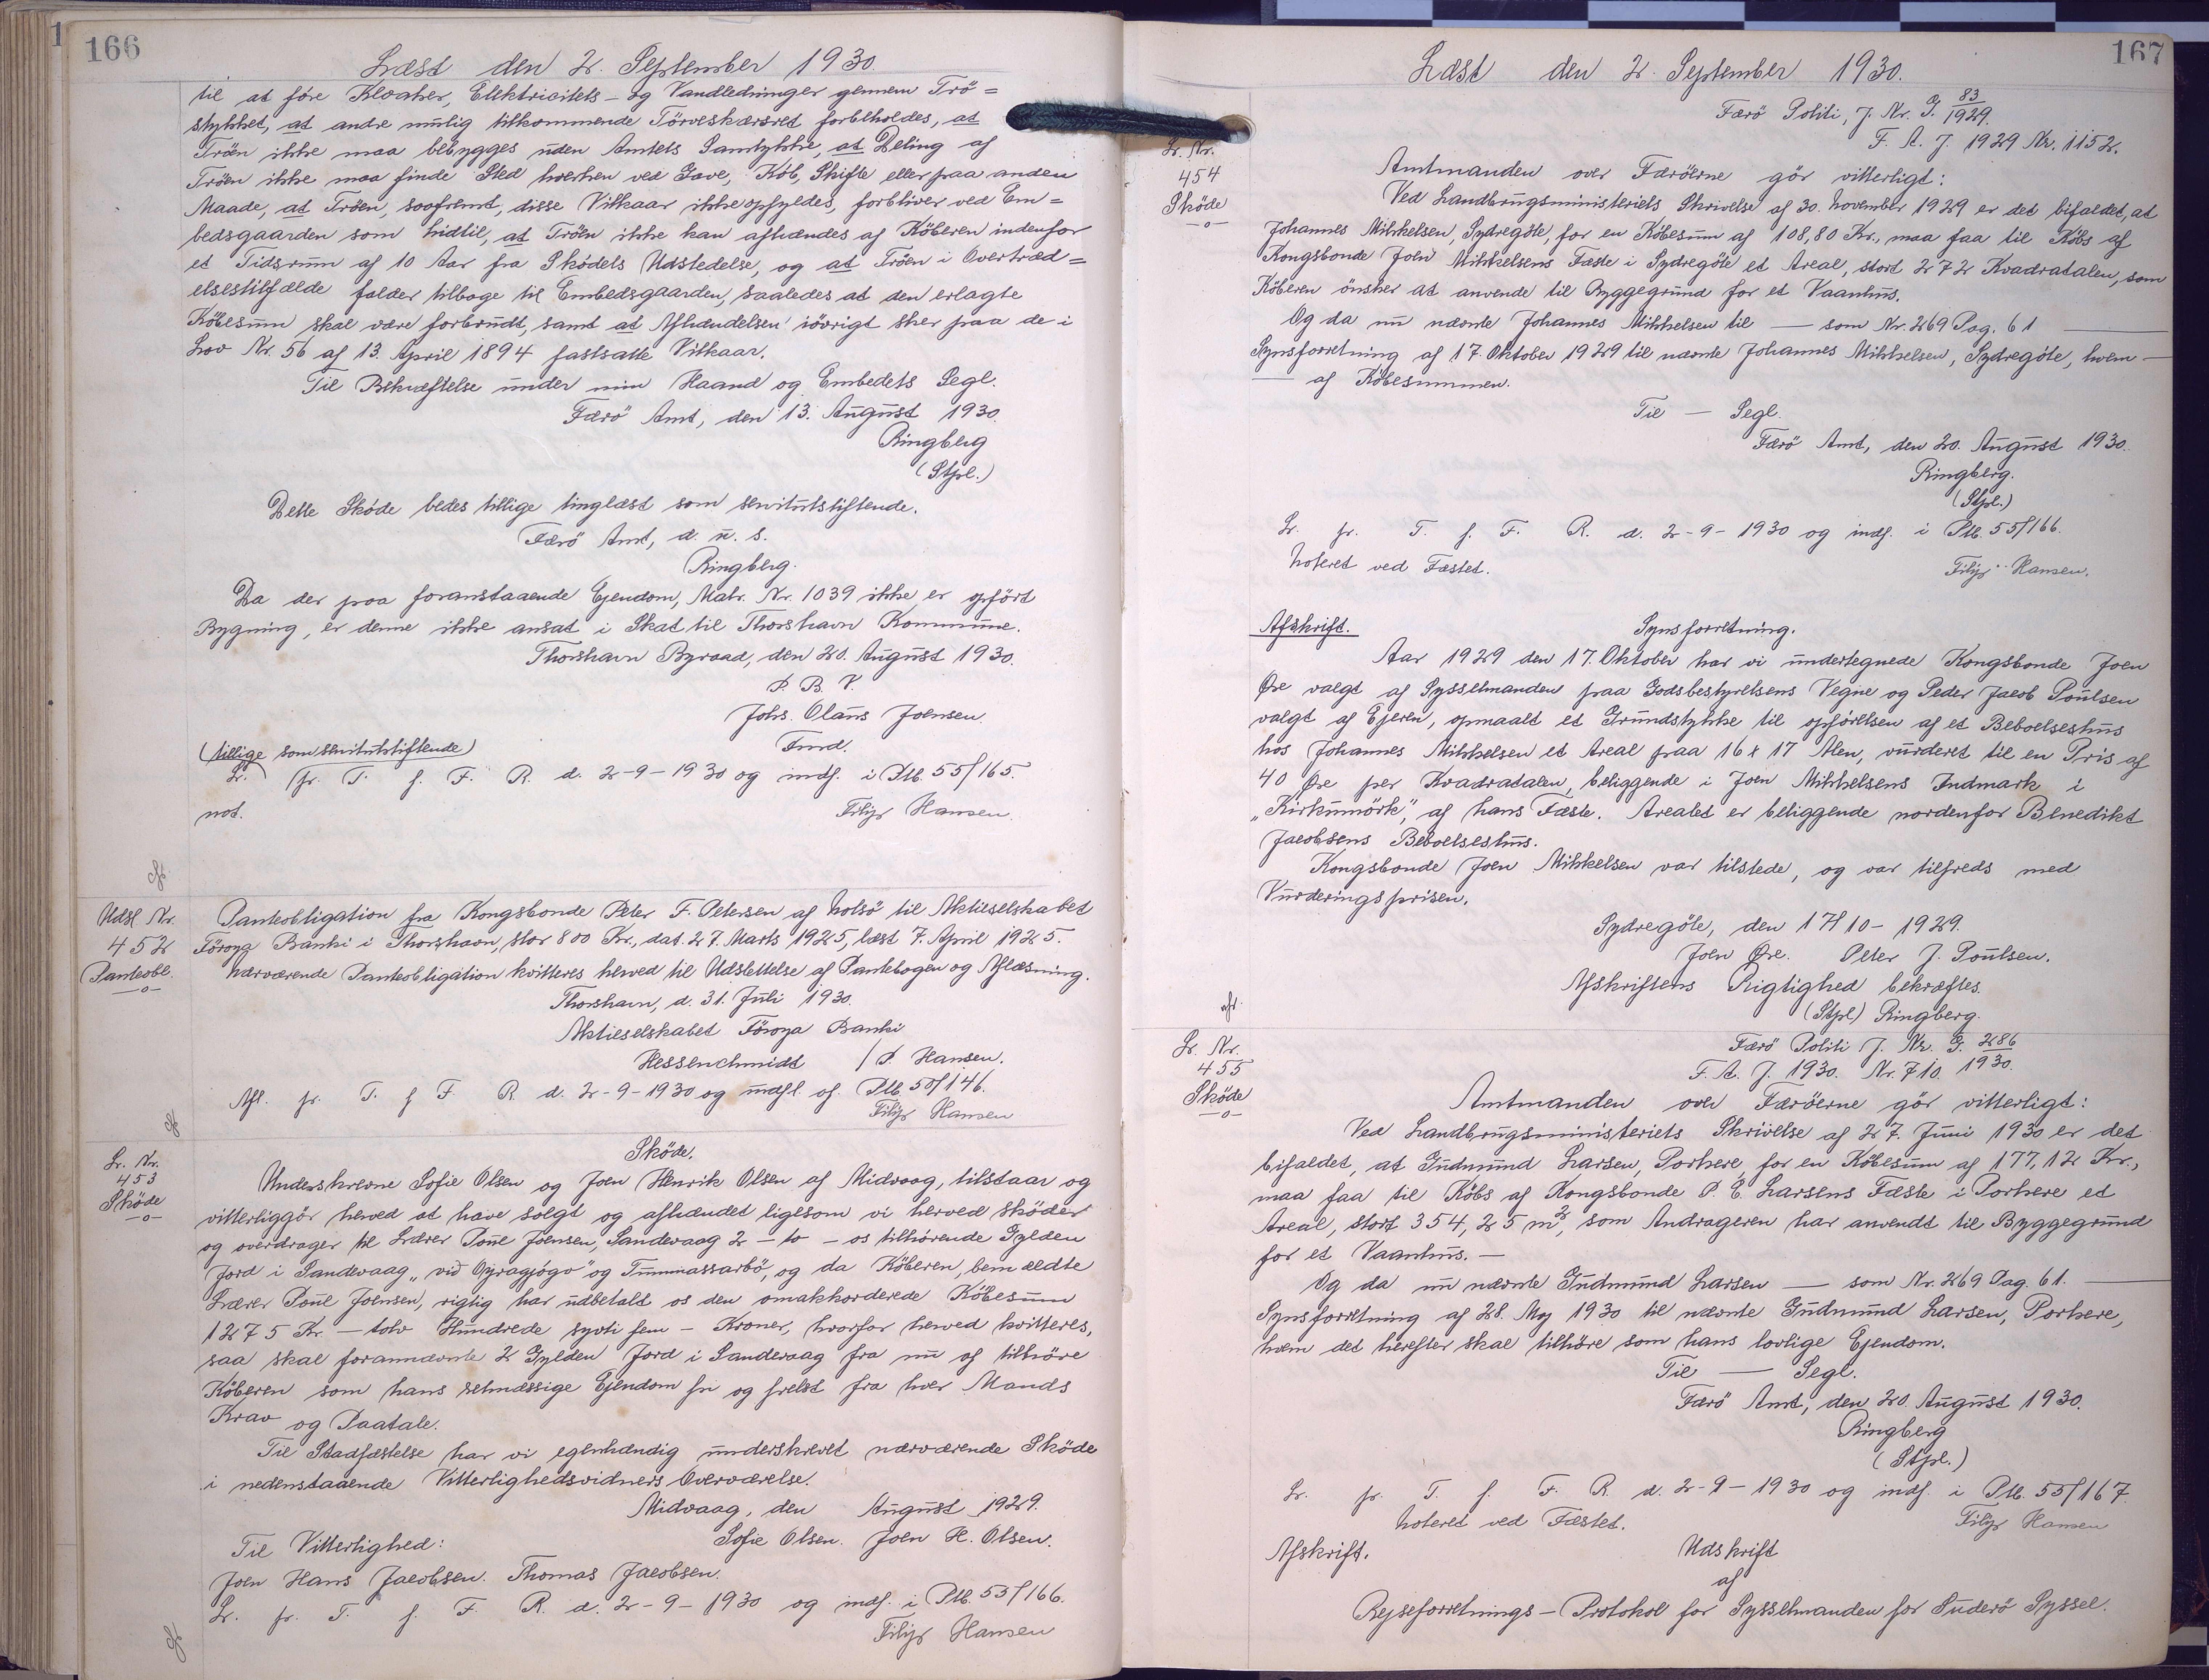 166
Læst den 2. September 1930.
til at føre Kloaker, Elektricitets- og Vandledninger gennem Trö=
stykket, at andre mulig tilkommende Törveskæresret forbeholdes, at
Tröen ikke maa bebygges uden Amtets Samtykke, at Deling af
Tröen ikke maa finde Sted hverken ved Gave, Köb, Skifte eller paa anden
Maade, at Tröen, saafremt, disse Vilkaar ikke opfyldes, forbliver ved Em=
bedsgaarden som hidtil, at Tröen ikke kan afhændes af Köberen indenfor
et Tidsrum af 10 Aar fra Skódets Udstedelse, og at Tröen i Overtræd=
elsestilfælde falder tilbage til Embedsgaarden, saaledes at den erlagte
Köbesum skal være forbrudt, samt at Afhændelsen iövrigt sker paa de i
Lov Nr. 56 af 13. April 1894 fastsatte Vilkaar.
Til Bekræftelse under min Haand og Embedets Segl.
Færö Amt, den 13. August 1930.
Ringberg
(Stpl.)
Dette Sköde bedes tillige tinglæst som servitutstiftende.
Færö Amt, d. u. s.
Ringberg.
Da der paa foranstaaende Ejendom, Matr. Nr. 1039 ikke er opfört
Bygning, er denne ikke ansat i Skat til Thorshavn Kommune.
Thorshavn Byraad, den 20. August 1930.
P. B. V.
Johs. Olaus Joensen.
Fmd.
(tillige som servitutstiftende)
Lr. fr. T. f. F. R. d. 2-9-1930 og indf. i Ptb. 55/165.
not.
Filip Hansen.
Udsl Nr.
452
Panteobl.
-o-
Panteobligation fra Kongsbonde Peter F. Petersen af Nolsö til Aktieselskabet
Föroya Banki i Thorshavn, stor 800 Kr., dat. 27. Marts 1925, læst 7. April 1925.
Nærværende Panteobligation kvitteres herved til Udslettelse af Pantebogen og Aflæsning.
Thorshavn, d. 31. Juli 1930.
Aktieselskabet Föroya Banki
Hessenchmidt / P. Hansen.
Afl. fr. T. f F. R. d. 2-9-1930 og udsl. af Ptb. 50/146.
Filip Hansen
Lr. Nr.
453
Sköde
-o-
Sköde.
Underskrevne Sofie Olsen og Joen Henrik Olsen af Midvaag, tilstaar og
vitterliggör herved at have solgt og afhændet ligesom vi herved sköder
og overdrager til Lærer Poul Joensen, Sandevaag 2 - to - os tilhörende Gylden
Jord i Sandevaag "við Oyragjógv" og Tummassarbö, og da Köberen, bemældte
Lærer Poul Joensen, rigtig har udbetalt os den omakkorderede Köbesum
1275 Kr. - tolv Hundrede syvti fem - Kroner, hvorfor herved kvitteres,
saa skal forannævnte 2 Gylden Jord i Sandevaag fra nu af tilhöre
Köberen som hans retmæssige Ejendom fri og frelst fra hver Mands
Krav og Paatale.
Til Stadfæstelse har vi egenhændig underskrevet nærværende Sköde
i nedenstaaende Vitterlighedsvidners Overværelse.
Midvaag, den August 1929.
Til Vitterlighed: Sofie Olsen. Joen H. Olsen.
Joen Hans Jacobsen. Thomas Jacobsen.
Lr. fr. T. f. F. R. d. 2-9-1930 og indf. i Ptb. 53/166.
Filip Hansen
167
Læst den 2. September 1930.
Færö Politi, J. Nr. G. 83/1929.
F. A. J. 1929 Nr. 1152.
Lr. Nr.
454
Sköde
-o-
Amtmanden over Færöerne gör vitterligt:
Ved Landbrugsministeriets Skrivelse af 30. November 1929 er det bifaldet, at
Johannes Mikkelsen, Sydregöte, for en Köbesum af 108,80 Kr., maa faa til Köbs af
Kongsbonde Joen Mikkelsens Fæste i Sydregöte et Areal, stort 272 Kvadratalen, som
Köberen önsker at anvende til Byggegrund for et Vaanhus.
Og da nu nævnte Johannes Mikkelsen til — som Nr. 269 Pag. 61 —
Synsforretning af 17. Oktober 1929 til nævnte Johannes Mikkelsen, Sydregöte, hvem —
— af Köbesummen.
Til — Segl.
Færö Amt, den 20. August 1930.
Ringberg.
(Stpl.)
Lr. fr. T. f. F. R. d. 2-9-1930 og indf. i Ptb. 55/166.
Noteret ved Fæstet. Filip Hansen.
Afskrift. Synsforretning.
Aar 1929 den 17. Oktober har vi undertegnede Kongsbonde Joen
Øre valgt af Sysselmanden paa Godsbestyrelsens Vegne og Peder Jacob Poulsen
valgt af Ejeren, opmaalt et Grundstykke til opförelsen af et Beboelseshus
hos Johannes Mikkelsen et Areal paa 16 x 17 Alen, vurderet til en Pris af
40 Øre per Kvadratalen, beliggende i Joen Mikkelsens Indmark i
"Kirkumörk", af hans Fæste. Arealet er beliggende nordenfor Benedikt
Jacobsens Beboelseshus.
Kongsbonde Joen Mikkelsen var tilstede, og var tilfreds med
Vurderingsprisen.
Sydregöte, den 17/10-1929.
Joen Øre. Peter J. Poulsen.
Afskriftens Rigtighed bekræftes.
(Stpl) Ringberg.
Lr. Nr.
455
Sköde
-o-
Færö Politi J. Nr. G. 286/1930.
F. A. J. 1930. Nr. 710.
Amtmanden over Færöerne gör vitterligt:
Ved Landbrugsministeriets Skrivelse af 27. Juni 1930 er det
bifaldet, at Gudmund Larsen, Porkere, for en Köbesum af 177,12 Kr.,
maa faa til Köbs af Kongsbonde P. E. Larsens Fæste i Porkere et
Areal, stort 354,25 m², som Andrageren har anvendt til Byggegrund
for et Vaanhus. —
Og da nu nævnte Gudmund Larsen — som Nr. 269 Pag. 61. —
Synsforretning af 28. Maj 1930 til nævnte Gudmund Larsen, Porkere,
hvem det herefter skal tilhöre som hans lovlige Ejendom.
Til — Segl.
Færö Amt, den 20. August 1930.
Ringberg
(Stpl.)
Lr. fr. T. f. F. R. d. 2-9-1930 og indf. i Ptb. 55/167.
Noteret ved Fæstet. Filip Hansen
Afskrift. Udskrift
af
Rejseforretnings-Protokol for Sysselmanden for Suderö Syssel.